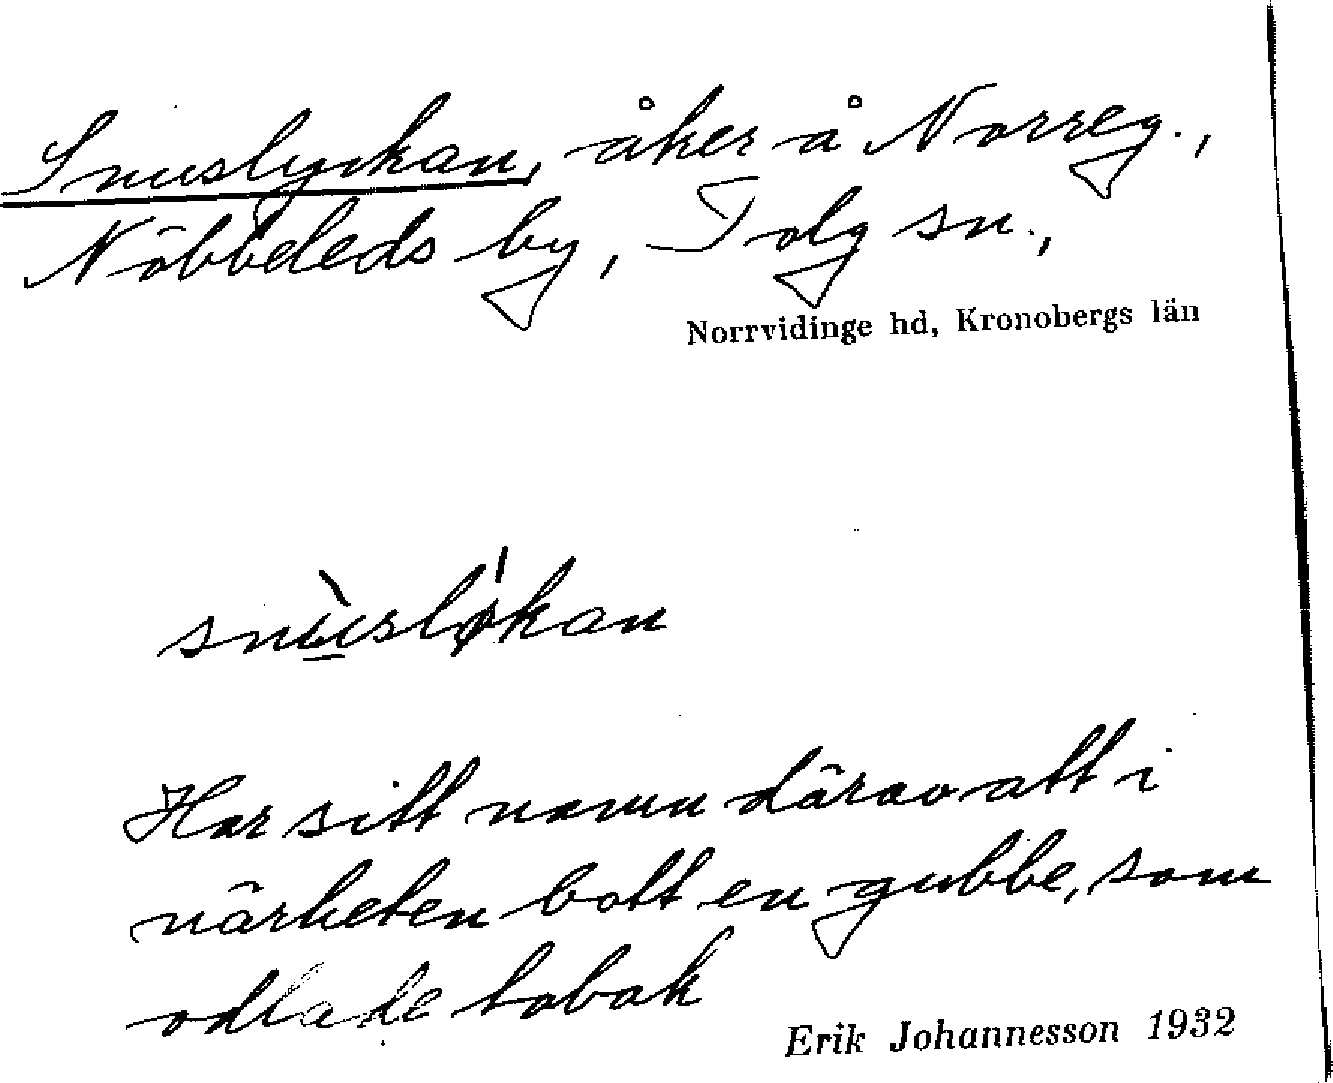 Snuslyckan, åker å Norreg.,
Nöbbeleds by, Tolg sn.,
Norrvidinge hd, Kronobergs län
snùsløkan
Har sitt namn därav att i
närheten bott en gubbe, som
odlade tobak
Erik Johannesson 1932